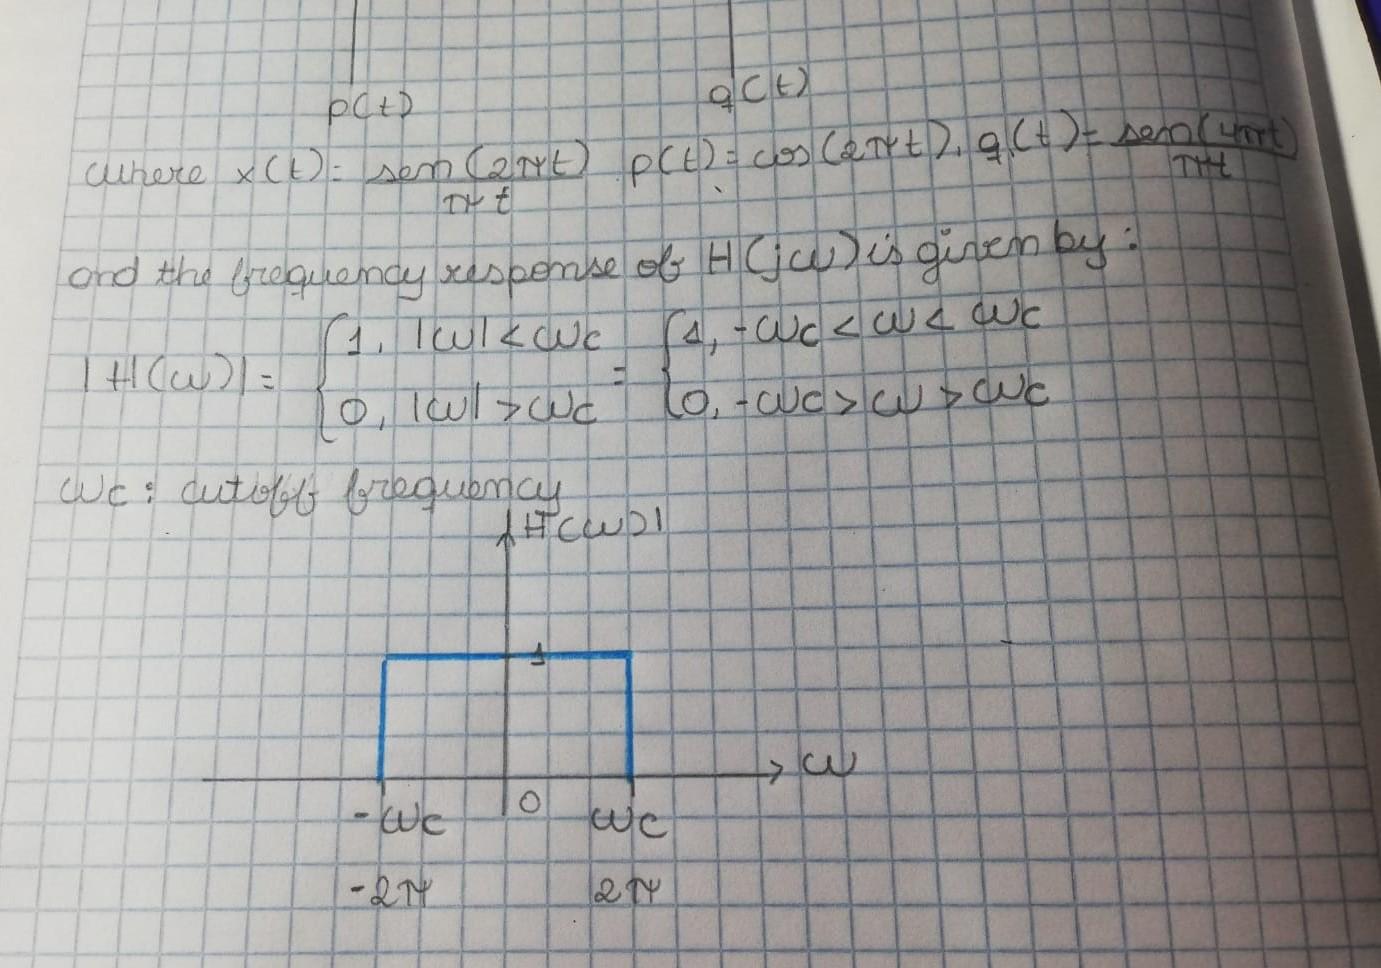 p(t) q(t)
where x(t)= sen(2πt)/πt p(t)= cos(2πt), q(t)= sen(4πt)/πt
and the frequency response of H(jω) is given by:
|H(ω)|= {1, |ω|<ωc = {1, -ωc<ω<ωc
{0, |ω|>ωc {0, -ωc>ω>ωc
ωc: cutoff frequency
|H(ω)|
1
ω
-ωc 0 ωc
-2π 2π